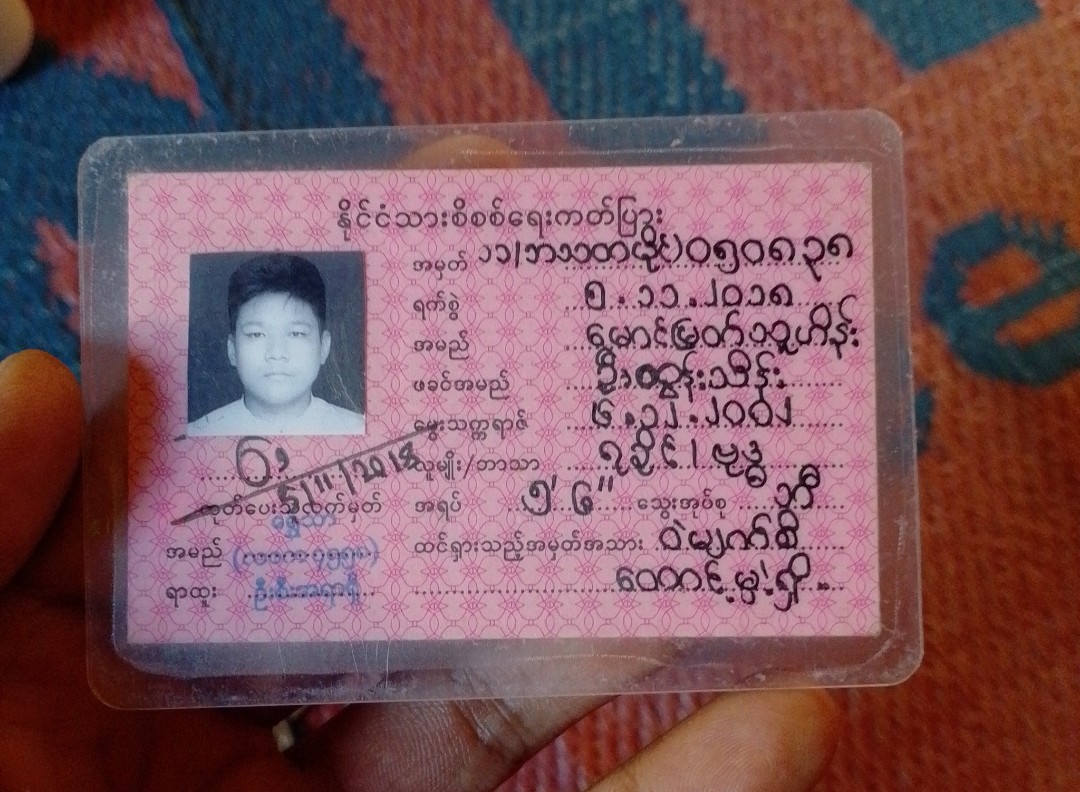 နိုင်ငံသားစိစစ်ရေးကတ်ပြား
အမှတ် ၁၁/ ၀၅၀၈၃၈
ရက်စွဲ ၅.၁၁.၂၀၁၈
အမည် မောင်မြတ်သူဟိန်း
ဖခင်အမည် ဦးထွန်းသိန်း
မွေးသက္ကရာဇ် ၆.၁၂.၂၀၀၂
လူမျိုး/ဘာသာ ရခိုင်/ဗုဒ္ဓ
အရပ် ၅' ၆" သွေးအုပ်စု ဘီ
ထင်ရှားသည့်အမှတ်အသား ဝဲမျက်စိ
ထောင့်မှဲ့ရှိ
5/11/2018
ထုတ်ပေးသူလက်မှတ်
အမည်
ရာထူး ဦးစီးအရာရှိ